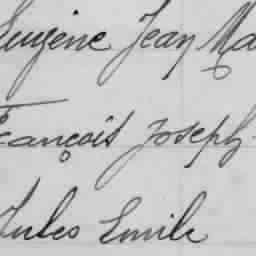 Eugène Jean Ma
François Joseph
Jules Emile